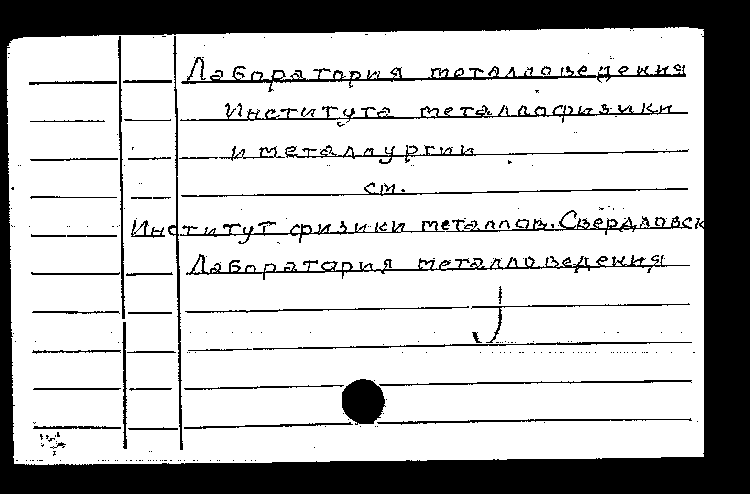 Лаборатория металловедения
Института металлофизики
и металлургии
см.
Институт физики металлов. Свердловск
Лаборатория металловедения